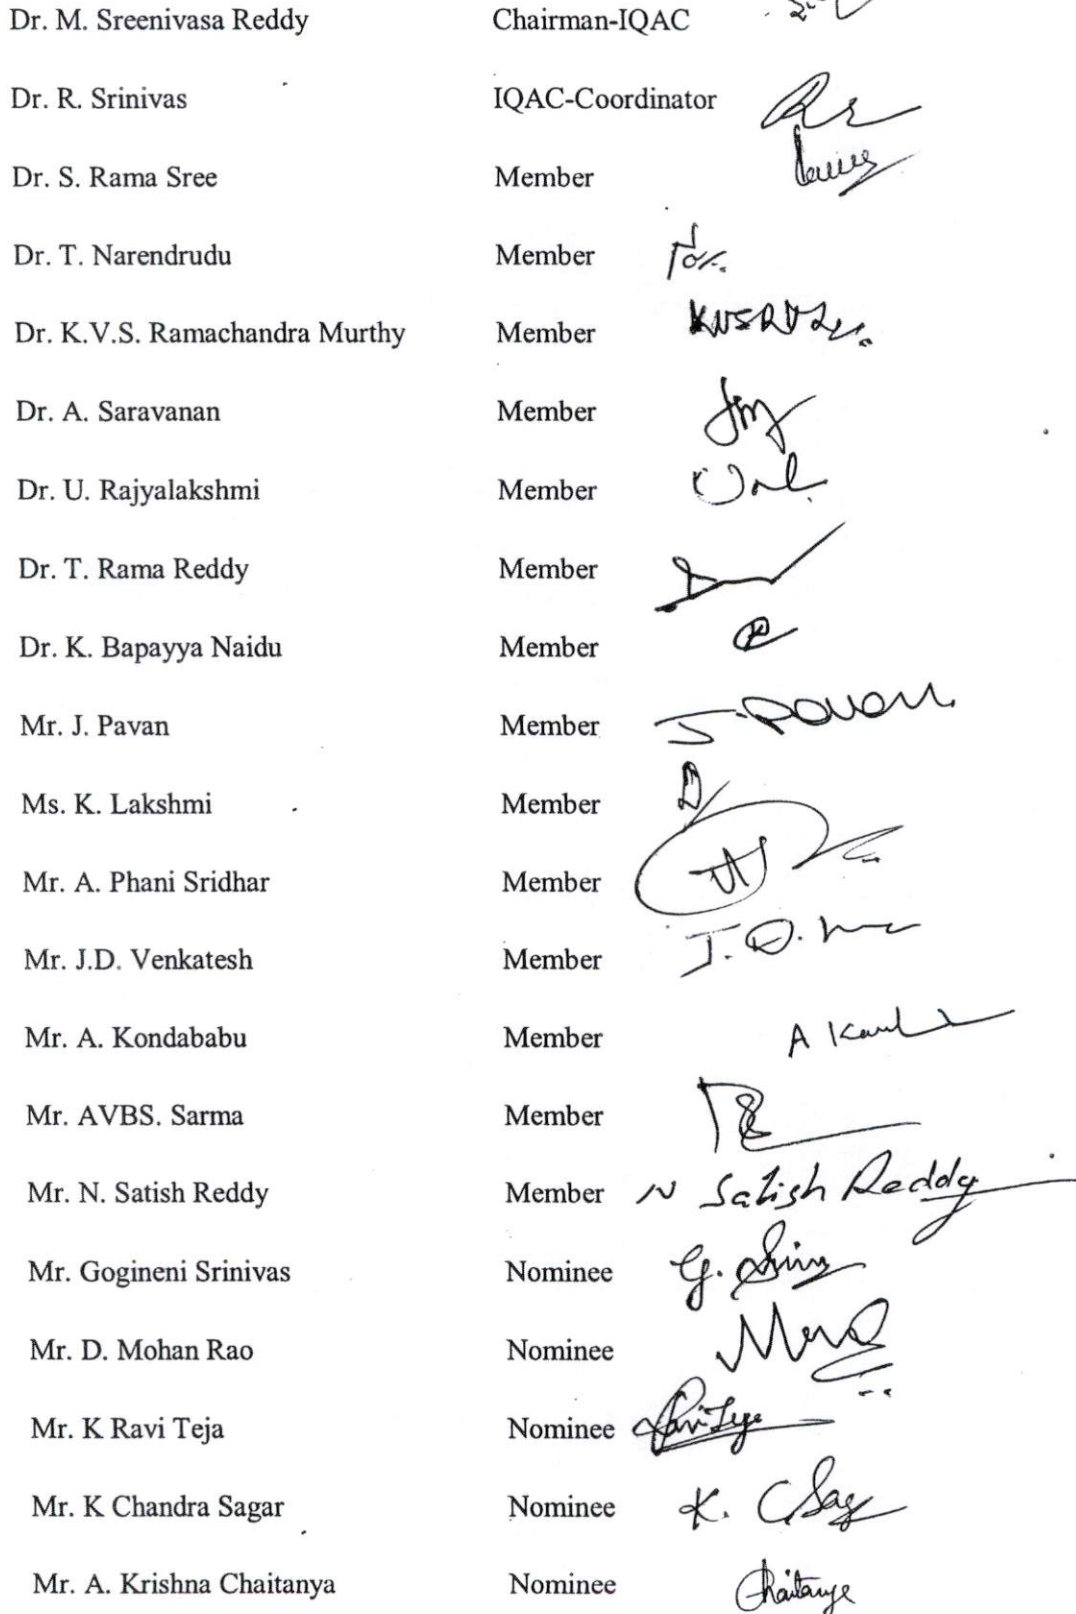 Dr. M. Sreenivasa Reddy Chairman-IQAC
Dr. R. Srinivas IQAC-Coordinator
Dr. S. Rama Sree Member
Dr. T. Narendrudu Member
Dr. K.V.S. Ramachandra Murthy Member
Dr. A. Saravanan Member
Dr. U. Rajyalakshmi Member
Dr. T. Rama Reddy Member
Dr. K. Bapayya Naidu Member
Mr. J. Pavan Member J. Pavan
Ms. K. Lakshmi Member
Mr. A. Phani Sridhar Member
Mr. J.D. Venkatesh Member J.D.
Mr. A. Kondababu Member A
Mr. AVBS. Sarma Member
Mr. N. Satish Reddy Member N Satish Reddy
Mr. Gogineni Srinivas Nominee G.
Mr. D. Mohan Rao Nominee
Mr. K Ravi Teja Nominee Ravi Teja
Mr. K Chandra Sagar Nominee K.
Mr. A. Krishna Chaitanya Nominee Chaitanya